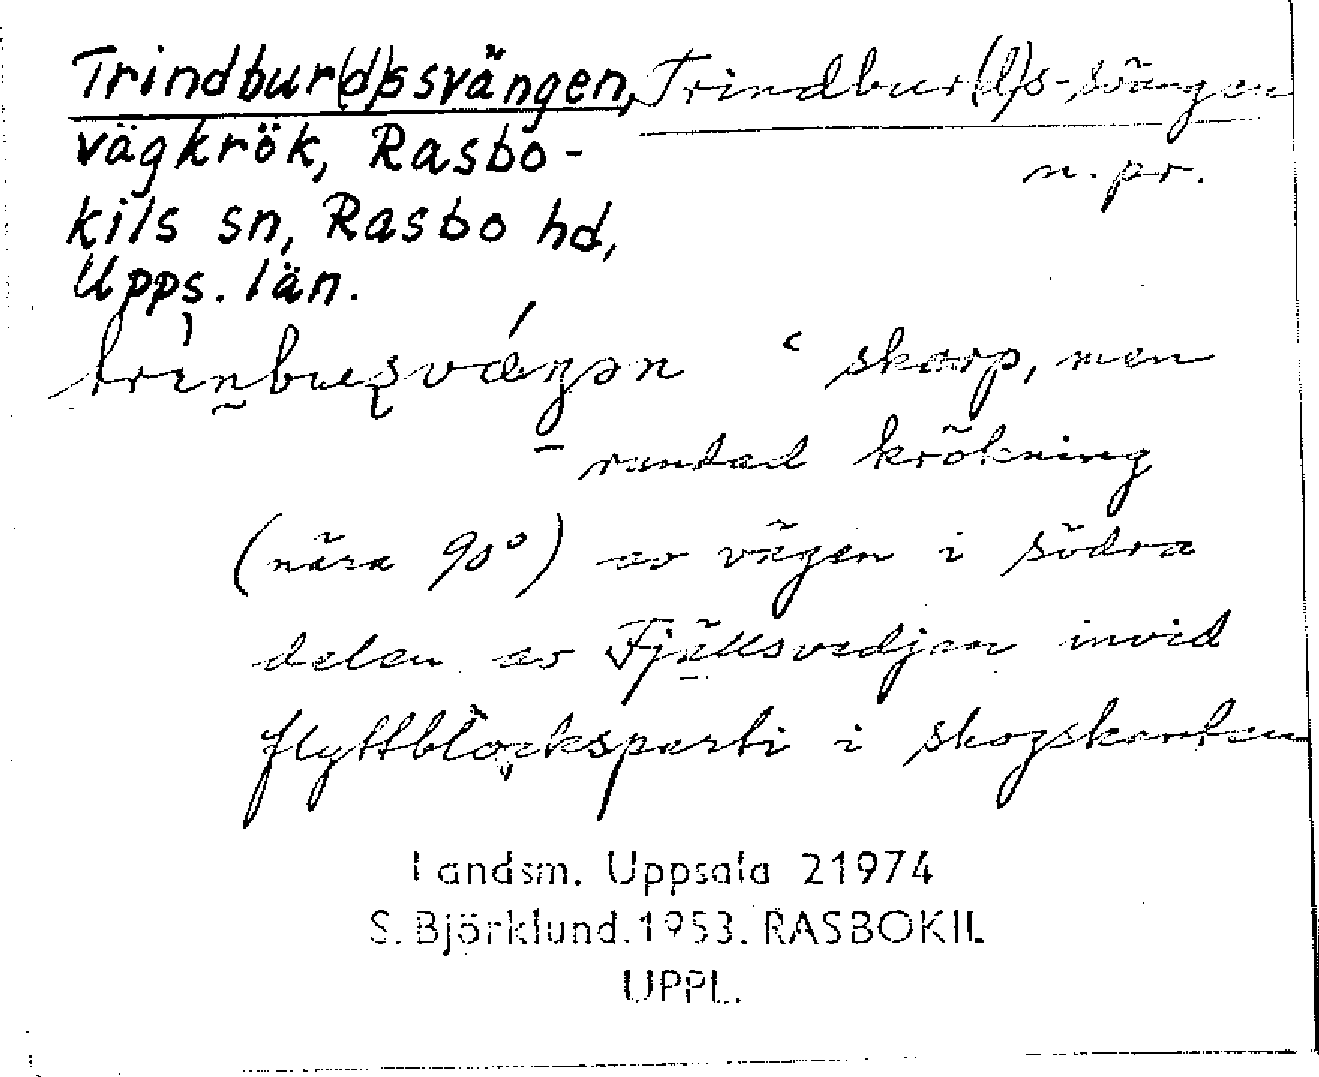 Trindbur(d)ssvängen, Trindbur(d)s-svängen
vägkrök, Rasbo-
n. pr.
kils sn, Rasbo hd,
Upps. län.
skarp, men
rundad krökning
(nära 90°) av vägen i södra
delen av Fjällsvedjan invid
flyttblocksparti i skogskanten
Landsm. Uppsala 21974
S. Björklund. 1953. RASBOKIL
UPPL.